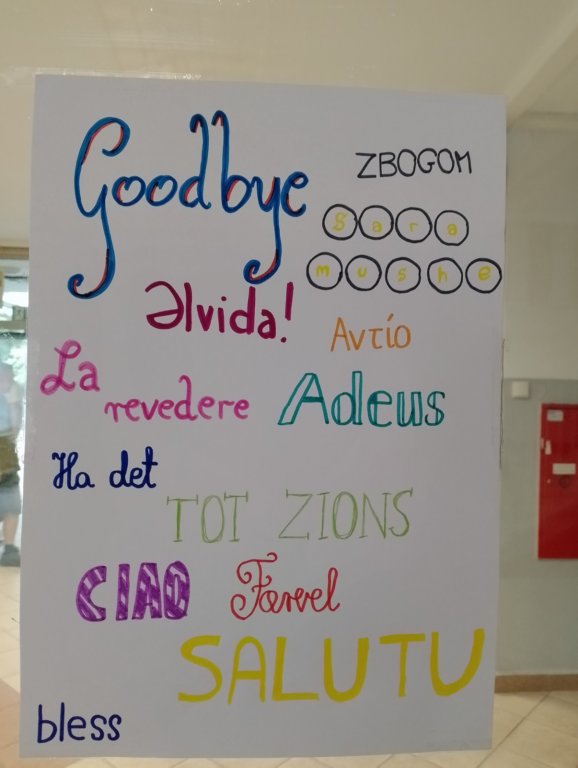 Goodbye
ZBOGOM
Sara
mushe
Əlvida!
Αντίο
La
revedere
Adeus
Ha det
TOT ZIONS
CIAO
Farvel
SALUTU
bless